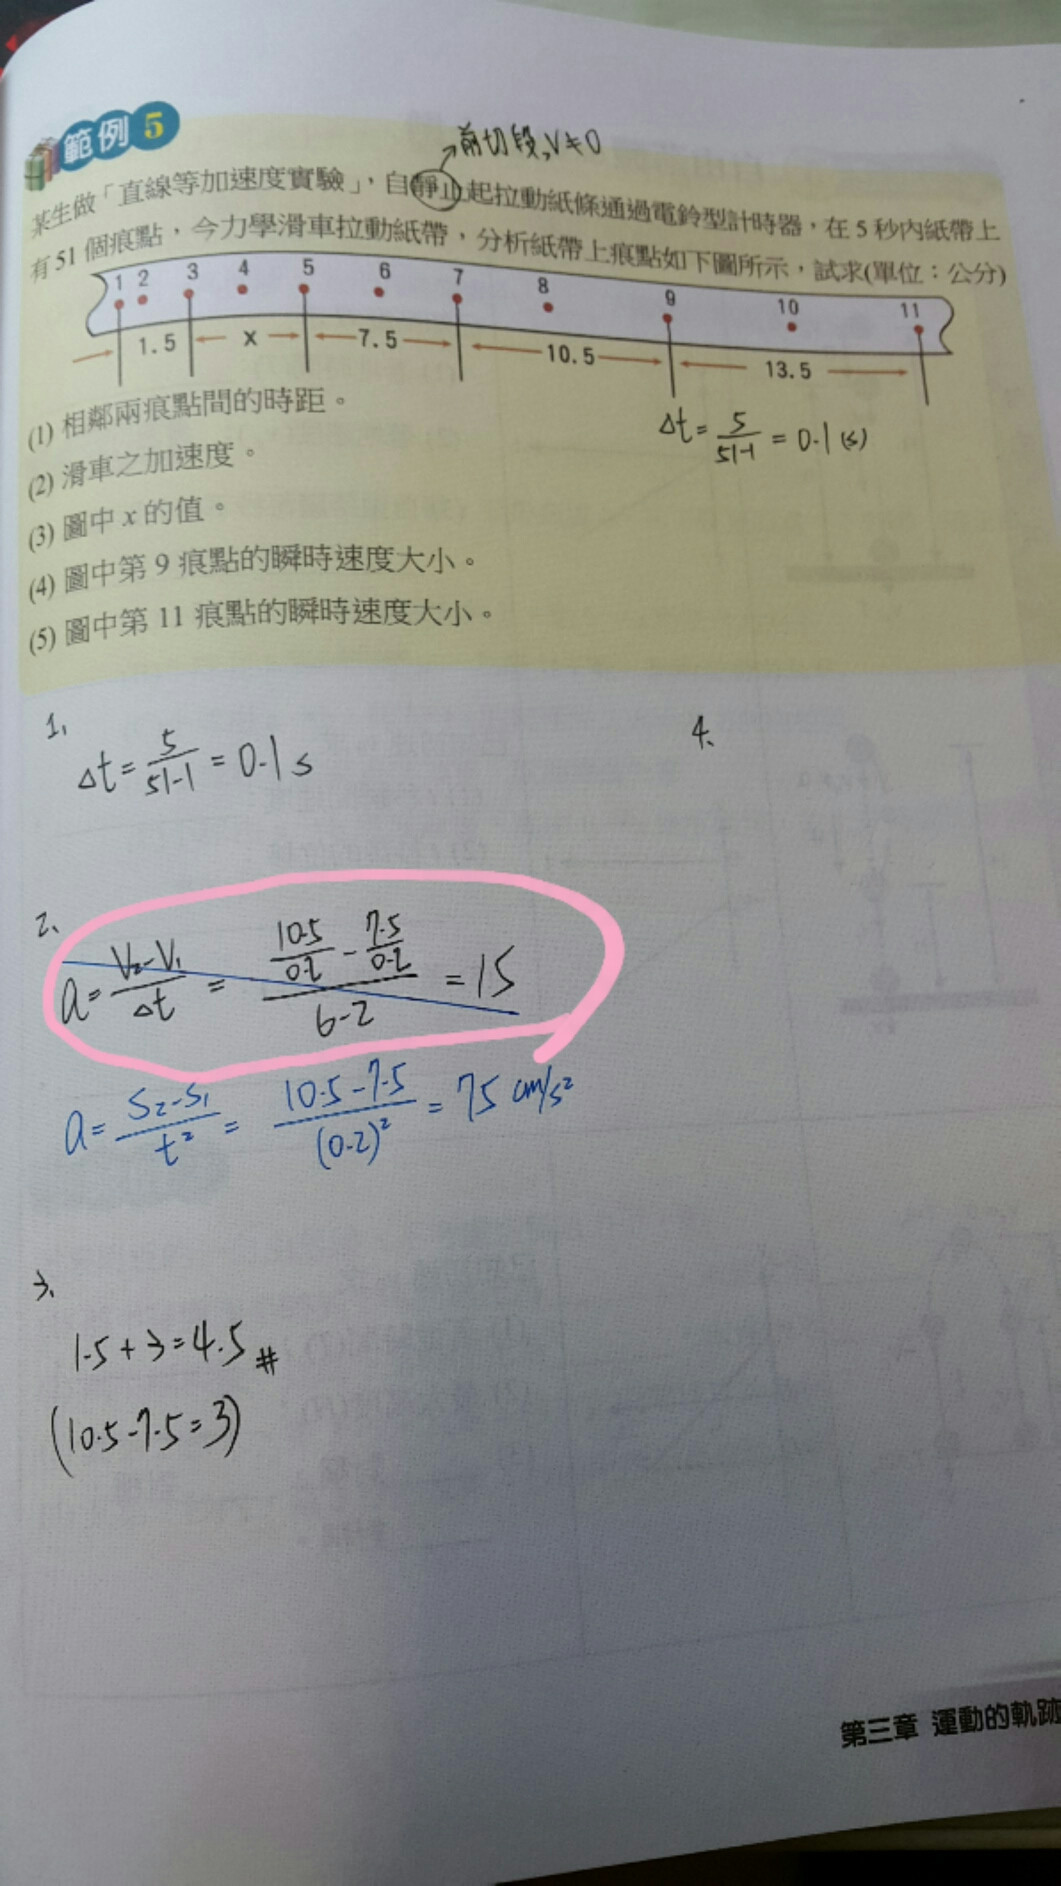 範例 5
前切段,V≠0
某生做「直線等加速度實驗」，自靜止起拉動紙條通過電鈴型計時器，在 5 秒內紙帶上
有 51 個痕點，今力學滑車拉動紙帶，分析紙帶上痕點如下圖所示，試求(單位：公分)
1 2 3 4 5 6 7 8 9 10 11
1.5 x 7.5 10.5 13.5
(1) 相鄰兩痕點間的時距。
Δt = 5/(51-1) = 0.1 (s)
(2) 滑車之加速度。
(3) 圖中 x 的值。
(4) 圖中第 9 痕點的瞬時速度大小。
(5) 圖中第 11 痕點的瞬時速度大小。
1、
Δt = 5/(51-1) = 0.1 s
4、
2、
a = (V₂-V₁)/Δt = (10.5/0.2 - 7.5/0.2)/(6-2) = 15
a = (S₂-S₁)/t² = (10.5-7.5)/(0.2)² = 75 cm/s²
3、
1.5+3=4.5 #
(10.5-7.5=3)
第三章 運動的軌跡